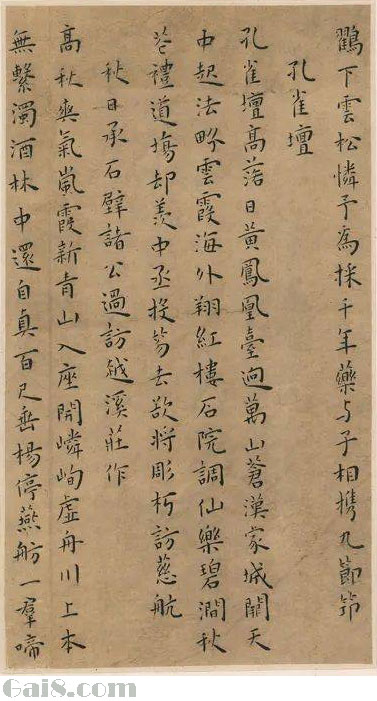 鸛下雲松憐予為採千年藥与子相携九節笻
孔雀壇
孔雀壇高落日黃鳳凰臺迥萬山蒼漢家城闕天
中起法畍雲霞海外翔紅樓石院調仙樂碧澗秋
花禮道場却羨中丞投笏去欲將彫朽訪慈航
秋日承石壁諸公過訪越溪莊作
高秋爽氣嵐霞新青山入座開嶙峋虛舟川上本
無繫濁酒林中還自真百尺垂楊停燕舫一羣啼
Gai8.com